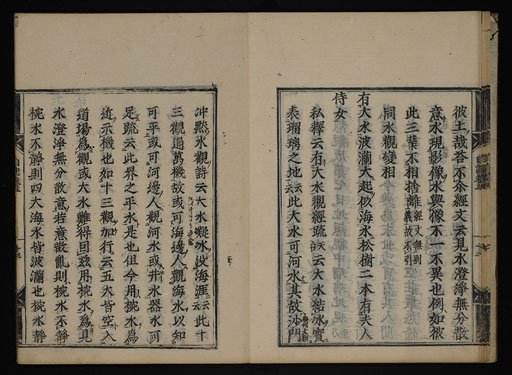 彼土哉答不余經文云見水澄淨無分散
意水現影像水與像不一不異也例如彼
此三業不相捨離經文無則義故不引
同水觀變相
有大水波瀾大起似海水松樹二本有夫人
侍女
私釋云有大水觀經疏云大水結冰實
表瑠璃之地云云此大水可河水其故沙門
沖黙水觀詩云大水凝冰海涯云云此十
三觀過萬機故或可海邊人觀海水以知
可乎或可河邊人觀河水或井水器水可
足疏云此界之平水是也但今用椀水爲
近示機也如十三觀加行云五大皆空入
道場爲觀或大水難得回玆用椀水爲見
水澄淨無分散意若意散亂則椀水不靜
椀水不靜則四大海水皆波瀾也椀水靜